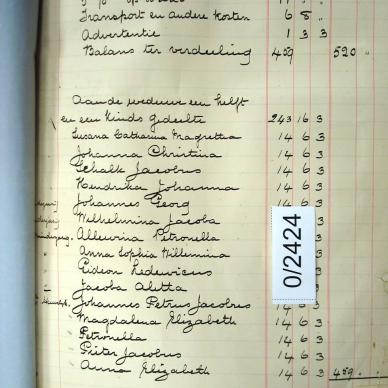 Transport en andere kosten 6 8 "
Advertentie 1 3 3
Balans ter verdeeling 459 520 "
Aan de weduwe een helft
en een kinds gedeelte 243 16 3
Susana Catharina Magretha 14 6 3
Johanna Christina 14 6 3
Schalk Jacobus 14 6 3
Hendrika Johanna 14 6 3
Johannes Georg 14 6 3
Wilhelmina Jacoba 14 6 3
Allewina Petronella 3
Anna Sophia Willemina 3
Gideon Lodewicus 3
Jacoba Aletta 3
Johannes Petrus Jacobus 3
Magdalena Elizabeth 14 6 3
Petronella 14 6 3
Pieter Jacobus 14 6 3
Anna Elizabeth 14 6 3 459 "
0/2424